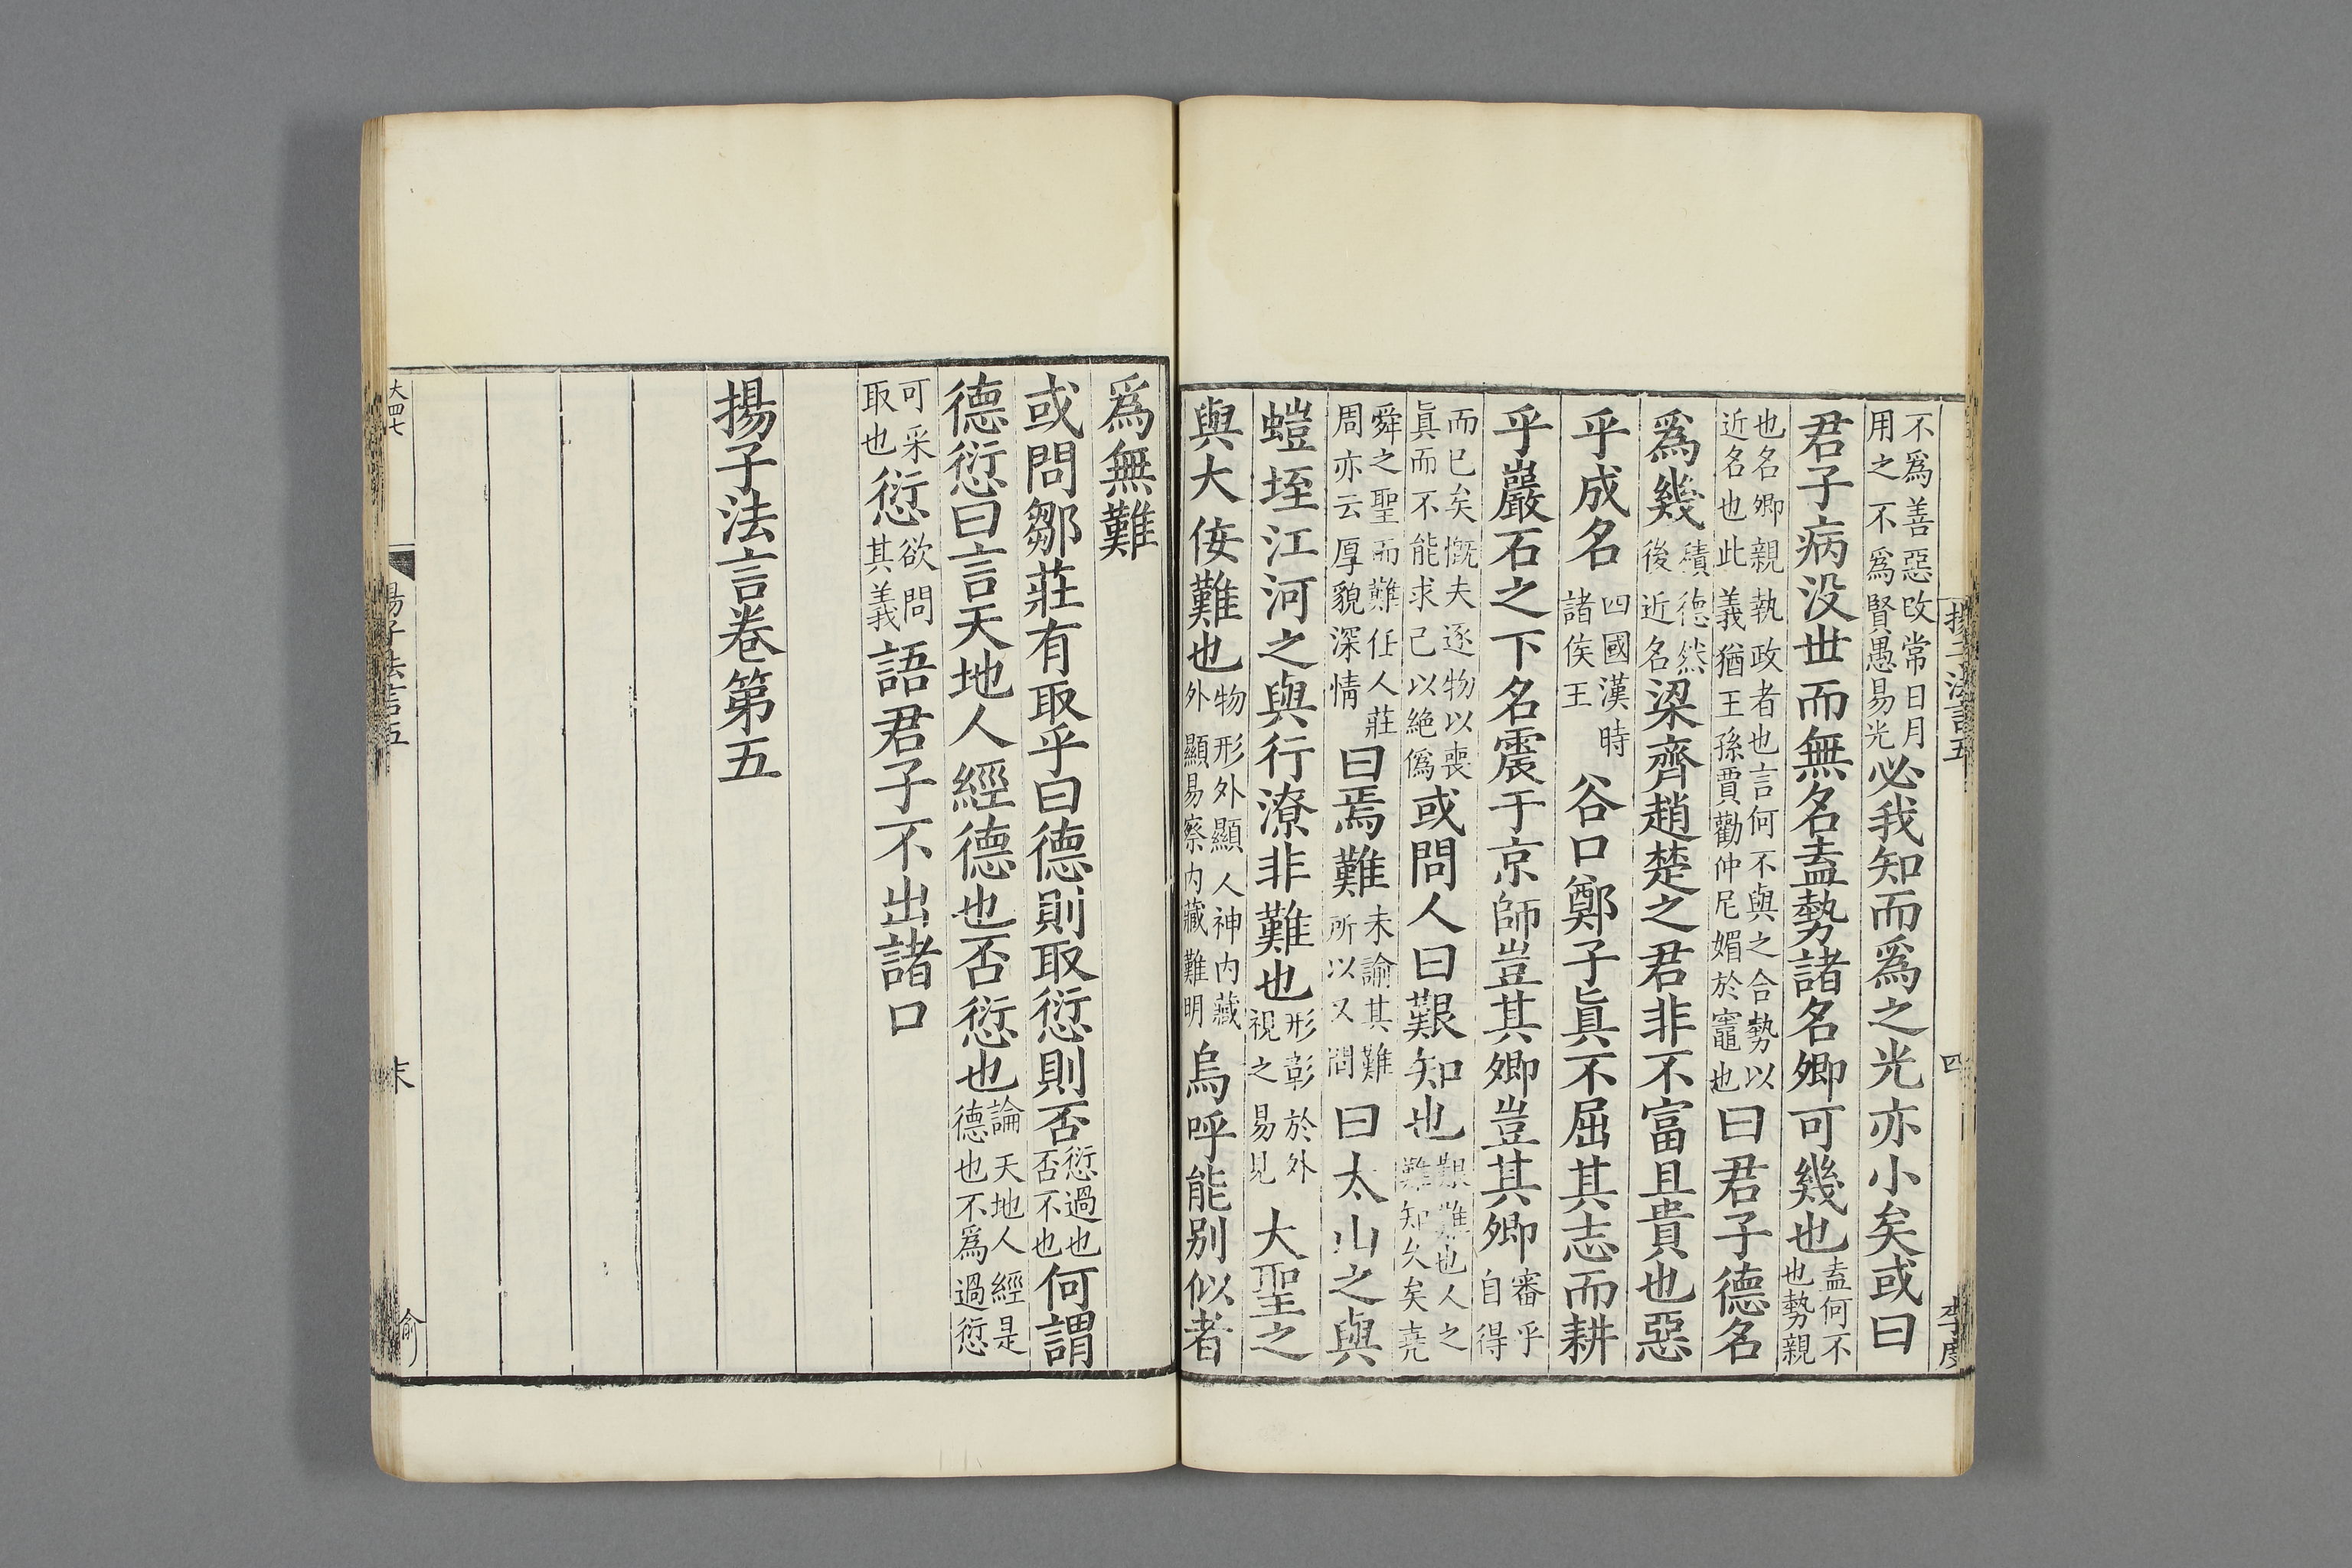 揚子法言五
四
李度
不爲善惡改常日月
用之不爲賢愚易光必我知而爲之光亦小矣或曰
君子病没世而無名盍勢諸名卿可幾也盍何不
也勢親
也名卿親執政者也言何不與之合勢以
近名也此義猶王孫賈勸仲尼媚於竈也曰君子德名
爲幾積德然
後近名梁齊趙楚之君非不富且貴也惡
乎成名四國漢時
諸侯王谷口鄭子眞不屈其志而耕
乎巖石之下名震于京師豈其卿豈其卿審乎
自得
而已矣慨夫逐物以喪
眞而不能求己以絶僞或問人曰艱知也艱難也人之
難知久矣堯
舜之聖而難任人莊
周亦云厚貌深情曰焉難未諭其難
所以又問曰太山之與
螘垤江河之與行潦非難也形彰於外
視之易見大聖之
與大佞難也物形外顯人神内藏
外顯易察内藏難明烏呼能别似者
爲無難
或問鄒莊有取乎曰德則取愆則否愆過也
否不也何謂
德愆曰言天地人經德也否愆也論天地人經是
德也不爲過愆
可采
取也愆欲問
其義語君子不出諸口
揚子法言卷第五
大四七
揚子法言五
末
俞